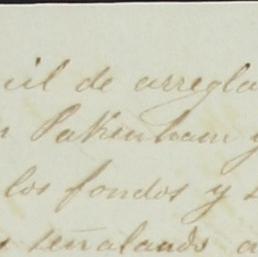 de arregla
Pakenham y
los fondos y
señalando